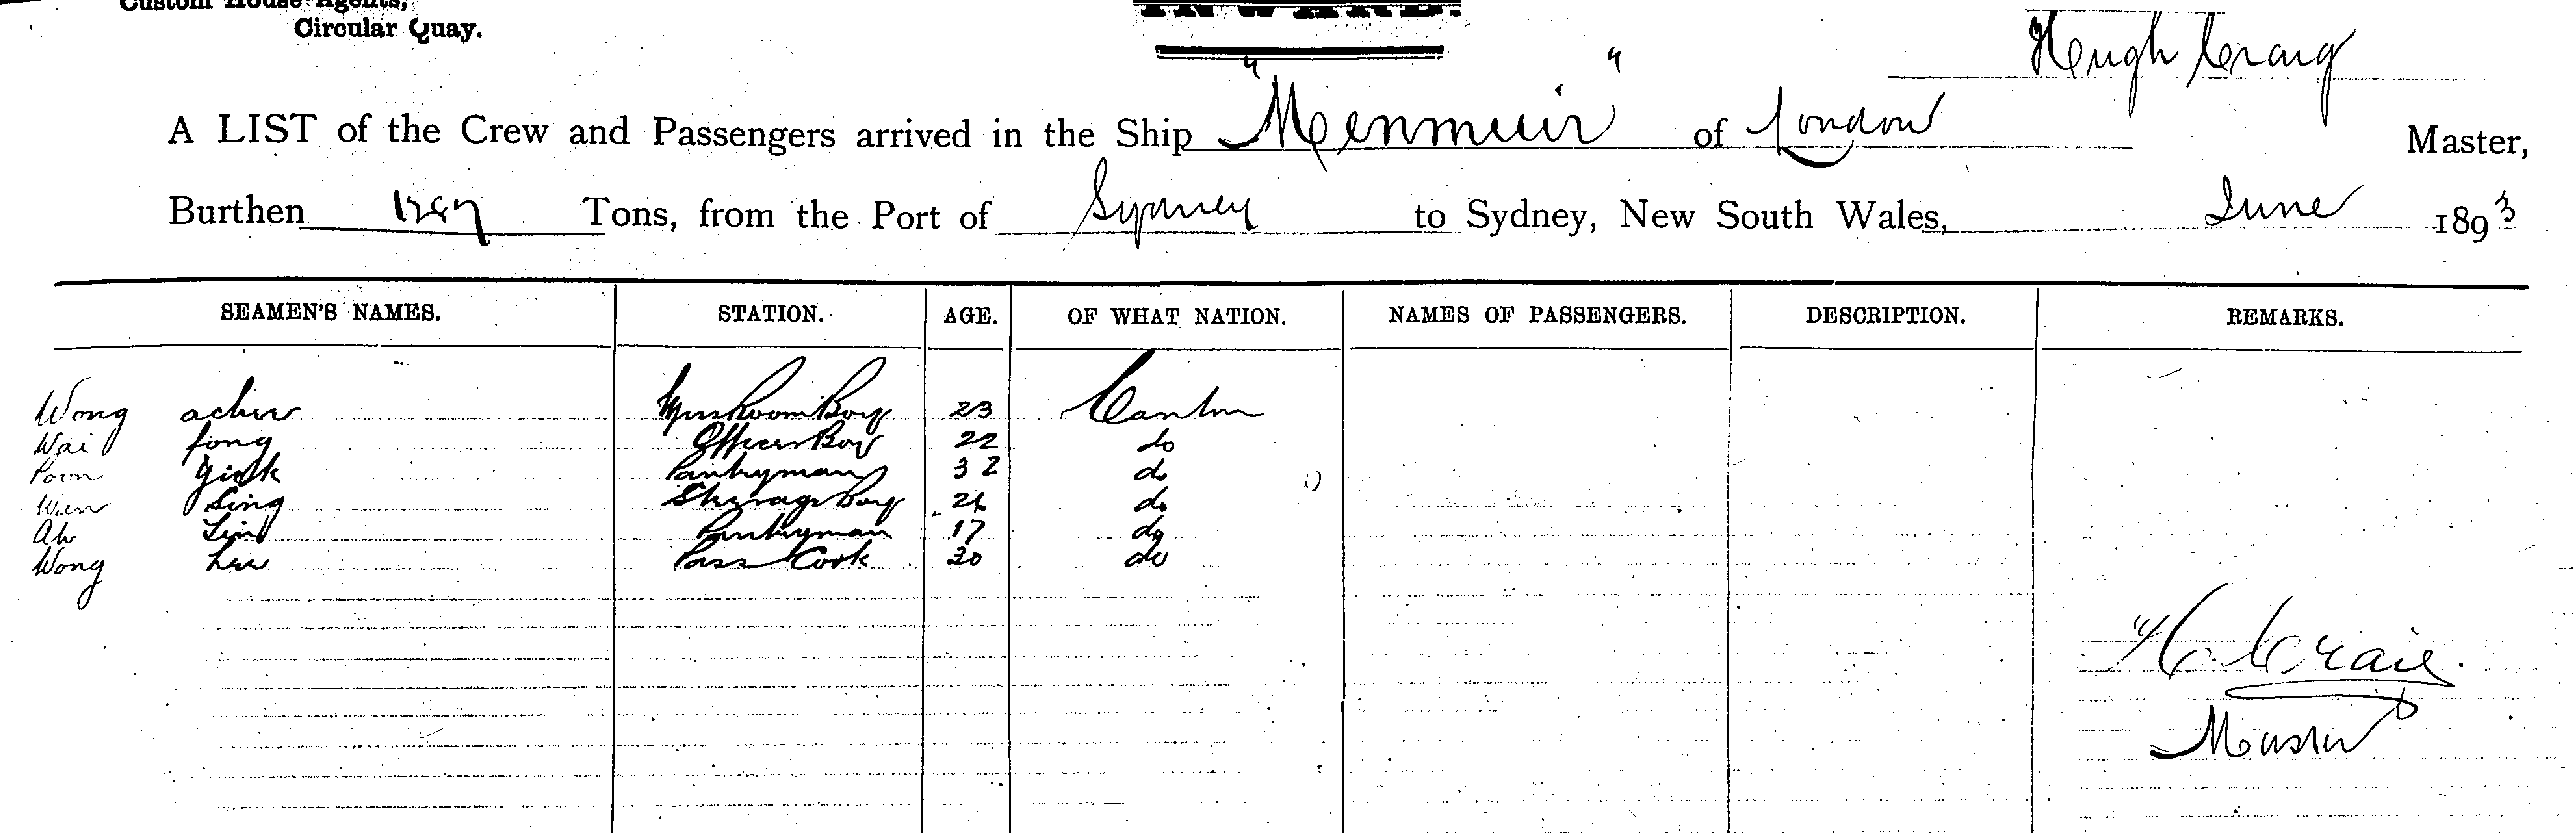 Custom House Agents,
Circular Quay.
Hugh Craig
A LIST of the Crew and Passengers arrived in the Ship "Menmuir" of London Master,
Burthen 1247 Tons, from the Port of Sydney to Sydney, New South Wales, June 1893
SEAMEN'S NAMES. STATION. AGE. OF WHAT NATION. NAMES OF PASSENGERS. DESCRIPTION. REMARKS.
Wong Messroom Boy 23 Canton
Wai fong Officers Boy 22 do
Poon Yick Pantryman 32 do
Wen Sing Steerage Boy 24 do
Ah Ling Pantryman 17 do
Wong Lee Pass Cook 30 do
H Craig.
Master